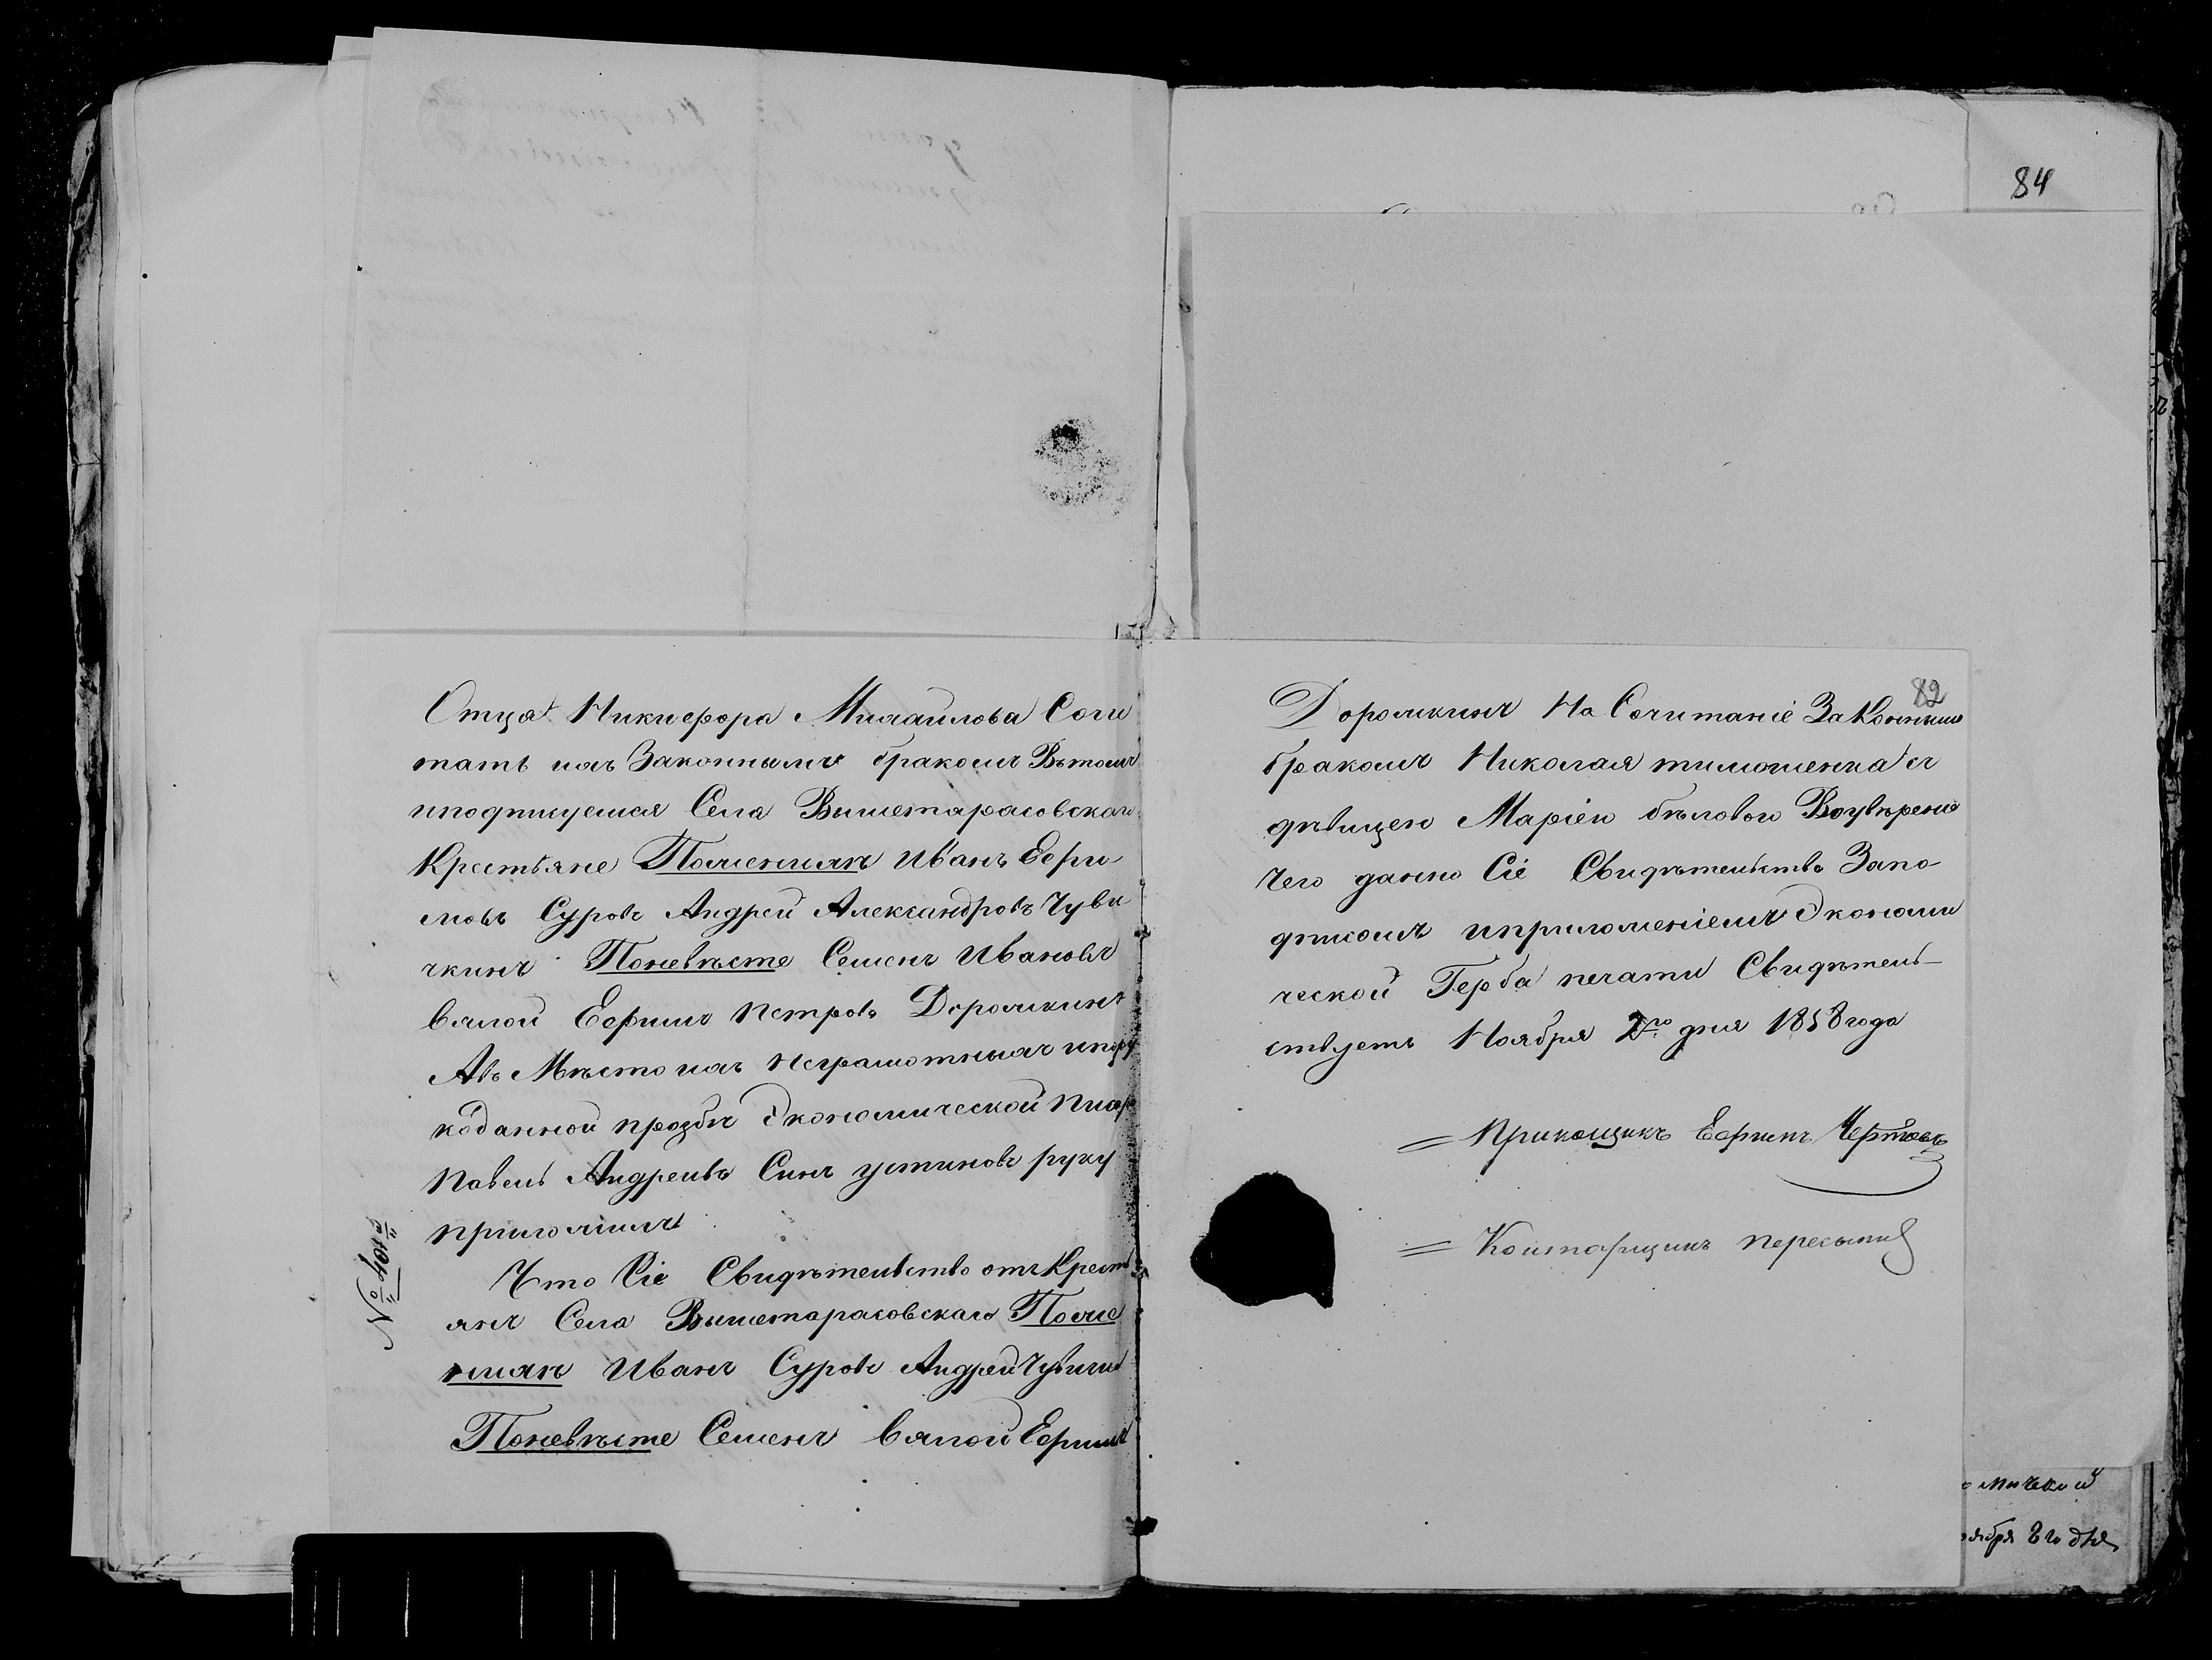 Отца Никифора Михайлова Соче
тать ихъ Законнымъ бракомъ Вътомъ
иподписуемся Села Вышетарасовскаго
Крестьяне Поженихѣ Иванъ Ефи
мовъ Суровъ Андрей Александровъ Чуви
чкинъ Поневѣсте Семенъ Ивановъ
вялой Ефимъ Петровъ Дорожкинъ
Авъ Мѣсто ихъ неграмотныхъ ипору
коданной прозбѣ Экономической писар
Павелъ Андреивъ Синъ устиновъ руку
приложилъ
Что Сіе Свидѣтельство отъ Кресть
янъ Села Вышетарасовскаго Поже
нихѣ Иванъ Суровъ Андрей Чувичкинъ
Поневѣсте Семенъ вялой Ефимъ
№ 401
82
Дорожкинъ На Сочитаніе Законнымъ
бракомъ Николая тимошенка съ
дѣвицею Маріею бѣловою Воувѣрение
Чего данно Сіе Свидѣтельство Запо
дписомъ иприложеніемъ Экономи
ческой Герба печати Свидѣтель-
ствуетъ Ноября 2го дня 1858 года
= Прикащикъ Ефимъ Чертовъ
= Конторщикъ
84
омичекой
оября 8 го дня